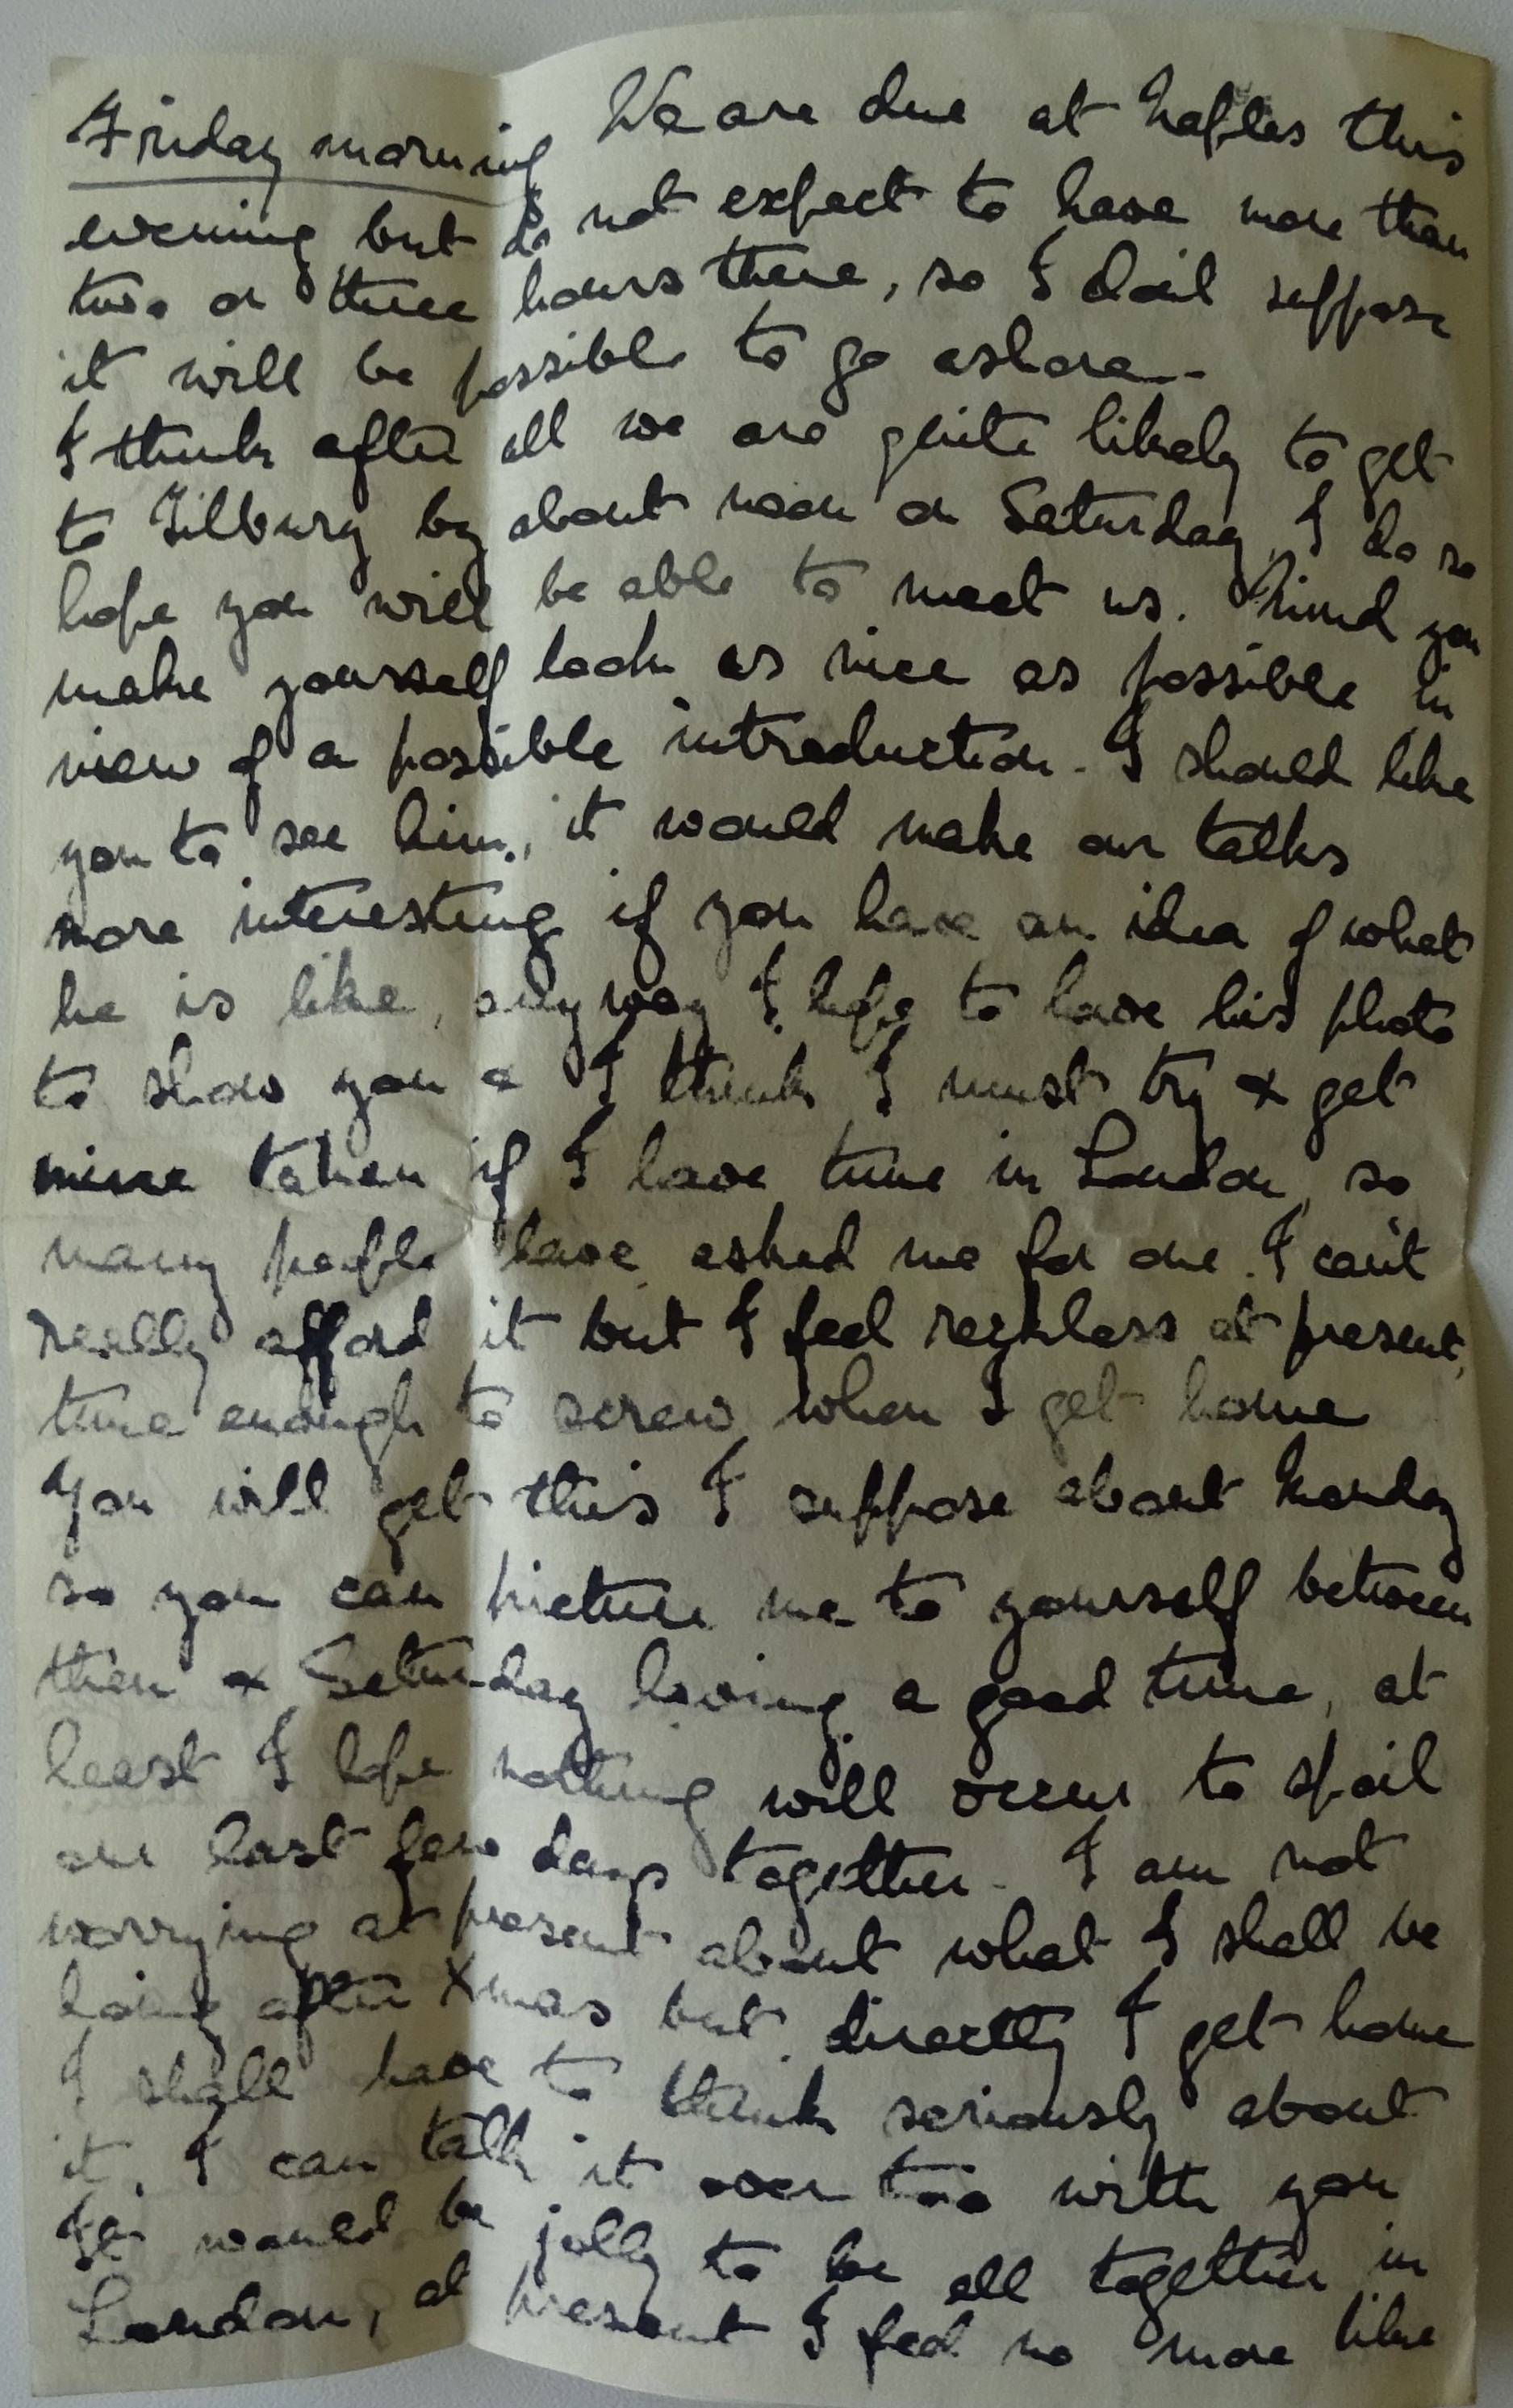 Friday morning We are due at Naples this
evening but do not expect to have more than
two or three hours there, so I don't suppose
it will be possible to go ashore -
I think after all we are quite likely to get
to Tilbury by about noon on Saturday, I do so
hope you will be able to meet us. Mind you
make yourself look as nice as possible in
view of a possible introduction - I should like
you to see him, it would make our talks
more interesting if you have an idea of what
he is like, anyway I hope to have his photo
to show you & I think I must try & get
mine taken if I have time in London, so
many people have asked me for one. I can't
really afford it but I feel reckless at present,
time enough to screw when I get home
You will get this I suppose about Monday
so you can picture me to yourself between
then & Saturday having a good time, at
least I hope nothing will occur to spoil
our last few days together - I am not
worrying at present about what I shall be
doing after Xmas but directly I get home
I shall have to think seriously about
it, I can talk it over too with you
It would be jolly to be all together in
London, at present I feel no more like